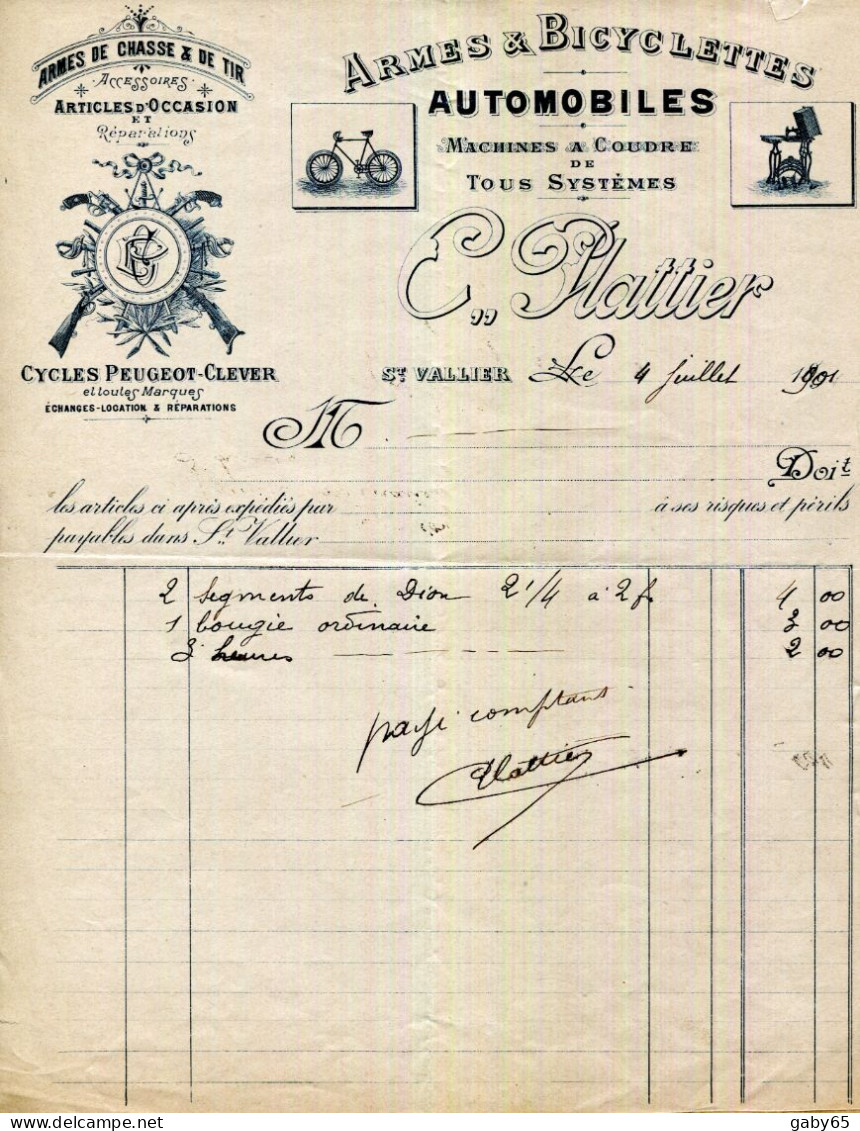 ARMES DE CHASSE & DE TIR
ACCESSOIRES
ARTICLES D'OCCASION
ET
Réparations
CYCLES PEUGEOT-CLEVER
et toutes Marques
ÉCHANGES-LOCATION & RÉPARATIONS
ARMES & BICYCLETTES
AUTOMOBILES
MACHINES A COUDRE
DE
TOUS SYSTÈMES
E. Plattier
ST VALLIER Le 4 juillet 1901
M
Doit
les articles ci après expédiés par à ses risques et périls
payables dans St Vallier
2 segments de Dion 2 1/4 à 2f 4 00
1 bougie ordinaire 3 00
3 heures 2 00
payé comptant
Plattier
delcampe.net
gaby65